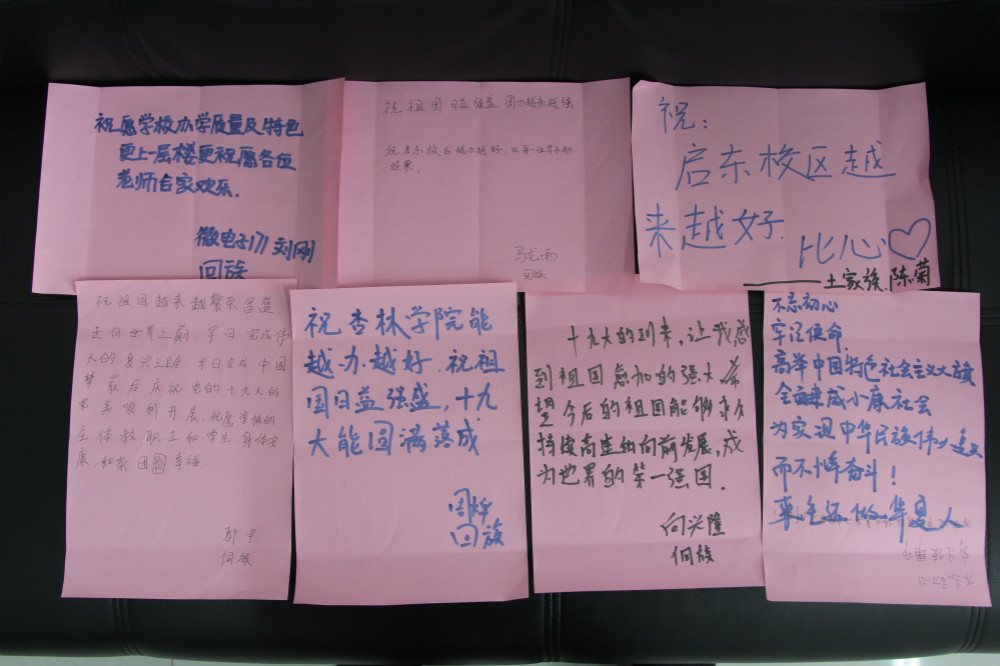 祝愿学校办学质量及特色
更上一层楼更祝愿各位
老师合家欢乐.
微电子171 刘刚
回族
祝祖国日益强盛 国力越来越强
祝启东校区越办越好
效果.
马龙雨
回族
祝:
启东校区越
来越好.
比心♡
——土家族.陈菊
祝祖国越来越繁荣昌盛
走向世界之巅. 早日完成伟
大的复兴之路 早日完成中国
梦 最后庆祝党的十九大的
完美顺利开展. 祝愿学校的
全体教职工和学生,身体安
康,和家团圆幸福.
侗族
祝杏林学院能
越办越好.祝祖
国日益强盛,十九
大能圆满落成
回族
十九大的到来,让我感
到祖国愈加的强大希
望今后的祖国能够永久
持续高速的向前发展,成
为世界的第一强国.
向兴隆
侗族
不忘初心
牢记使命.
高举中国特色社会主义大旗
全面建成小康社会
为实现中华民族伟大复兴
而不懈奋斗!
来生还做华夏人
不忘初心